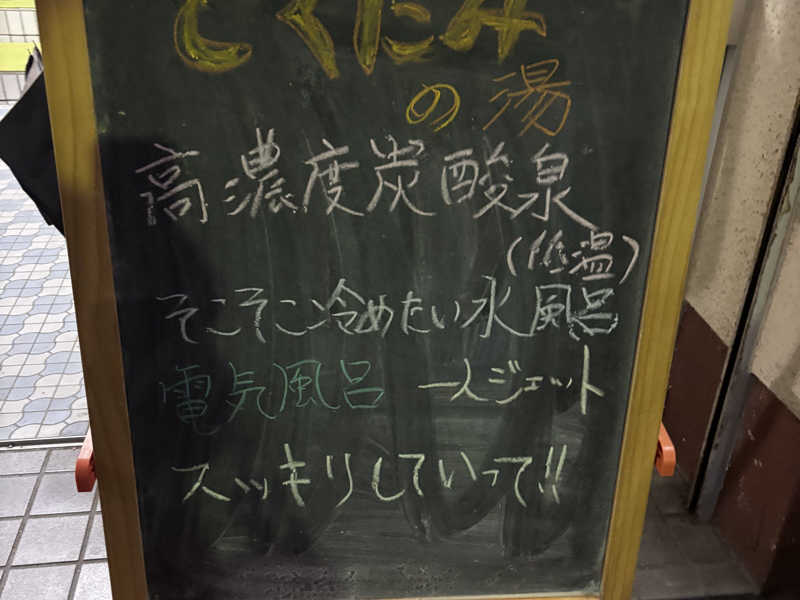 どくだみ
の湯
高濃度炭酸泉
(低温)
そこそこ冷めたい水風呂
電気風呂 一人ジェット
スッキリしていって!!